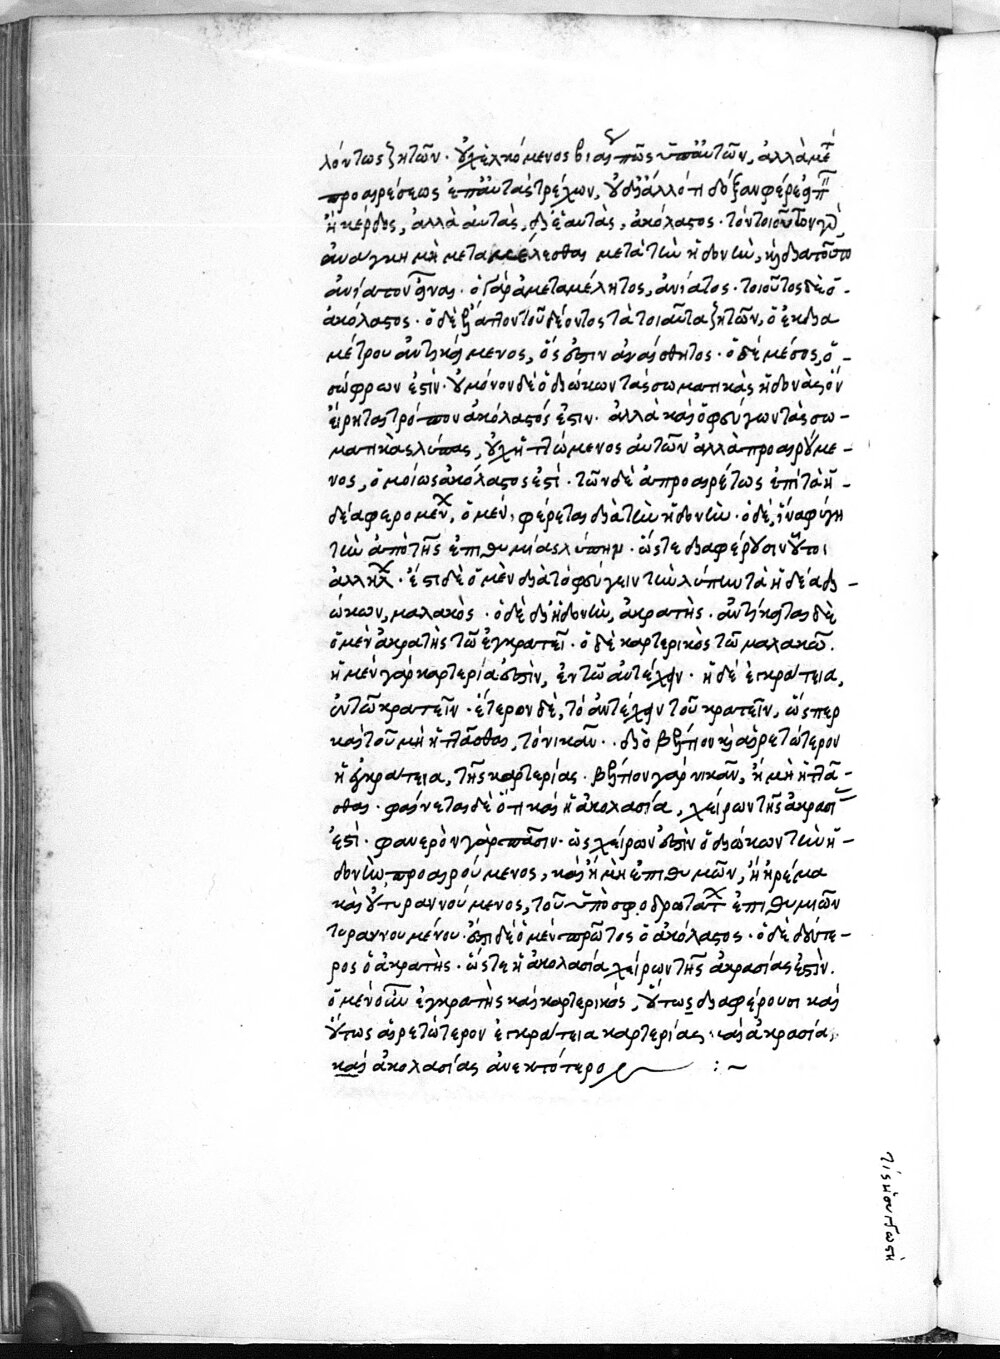 λόντως ζητῶν· οὐχ ἑλκόμενος βιαίως πῶς ὑπ' αὐτῶν, ἀλλὰ μετὰ
προαιρέσεως ἐπ' αὐτὰς τρέχων, οὐ δι' ἄλλό τι δόξαν φέρε εἰπεῖν
ἢ κέρδος, ἀλλὰ αὐτὰς δι' ἑαυτὰς, ἀκόλαστος· τὸν τοιοῦτον γὰρ
ἀνάγκη μὴ μεταμελεῖσθαι μετὰ τὴν ἡδονὴν, καὶ διατοῦτο
ἀνίατον εἶναι· ὁ γὰρ ἀμεταμέλητος, ἀνίατος· τοιοῦτος δὲ ὁ
ἀκόλαστος· ὁ δὲ ἐλλεῖπον τοῦ δέοντος τὰ τοιαῦτα ζητῶν, ὁ ἐκ δια
μέτρου ἀντικείμενος, ὅς ἐστιν ἀναίσθητος· ὁ δὲ μέσος, ὁ
σώφρων ἐστίν· οὐ μόνον δὲ ὁ διώκων τὰς σωματικὰς ἡδονὰς ὃν
εἴρηται τρόπον ἀκόλαστός ἐστιν· ἀλλὰ καὶ ὁ φεύγων τὰς σω-
ματικὰς λύπας, οὐχ ἡττώμενος αὐτῶν ἀλλὰ προαιρούμε-
νος, ὁμοίως ἀκόλαστος ἐστί· τῶν δὲ ἀπροαιρέτως ἐπὶ τὰ ἡ-
δέα φερομένων, ὁ μὲν, φέρεται διὰ τὴν ἡδονὴν· ὁ δὲ, ἵνα φύγη
τὴν ἀπὸ τῆς ἐπιθυμίας λύπην· ὥστε διαφέρουσιν οὗτοι
ἀλλήλων· ἔστι δὲ ὁ μὲν διὰ τὸ φεύγειν τὴν λύπην τὰ ἡδέα δι-
ώκων, μαλακὸς· ὁ δὲ δι' ἡδονὴν, ἀκρατὴς· ἀντίκειται δὲ
ὁ μὲν ἀκρατὴς τῶ ἐγκρατεῖ· ὁ δὲ καρτερικὸς τῶ μαλακῶ.
ἡ μὲν γὰρ καρτερία ἐστὶν, ἐν τῶ ἀντέχειν· ἡ δὲ ἐγκράτεια,
ἐν τῶ κρατεῖν· ἕτερον δὲ, τὸ ἀντέχειν τοῦ κρατεῖν, ὥσπερ
καὶ τοῦ μὴ ἡττᾶσθαι, τὸ νικᾶν· διὸ βέλτιον καὶ αἱρετώτερον
ἡ ἐγκράτεια, τῆς καρτερίας· βέλτιον γὰρ νικᾶν, ἢ μὴ ἡττᾶ-
σθαι· φαίνεται δὲ ὅτι καὶ ἡ ἀκολασία, χείρων τῆς ἀκρασίας
ἐστί· φανερὸν γὰρ πᾶσιν· ὡς χείρων ἐστὶν ὁ διώκων τὴν ἡ-
δονὴν προαιρούμενος, καὶ ἢ μὴ ἐπιθυμῶν, ἢ ἠρέμα
καὶ οὐ τυραννούμενος, τοῦ ὑπὸ σφοδροτάτων ἐπιθυμιῶν
τυραννουμένου· ἔστι δὲ ὁ μὲν πρῶτος ὁ ἀκόλαστος· ὁ δὲ δεύτε-
ρος ὁ ἀκρατὴς· ὥστε ἡ ἀκολασία χείρων τῆς ἀκρασίας ἐστὶν.
ὁ μὲν οὖν ἐγκρατὴς καὶ καρτερικός, οὕτως διαφέρουσι καὶ
οὕτως αἱρετώτερον ἐγκράτεια καρτερίας· καὶ ἀκρασία,
καὶ ἀκολασίας ἀνεκτότερον :~